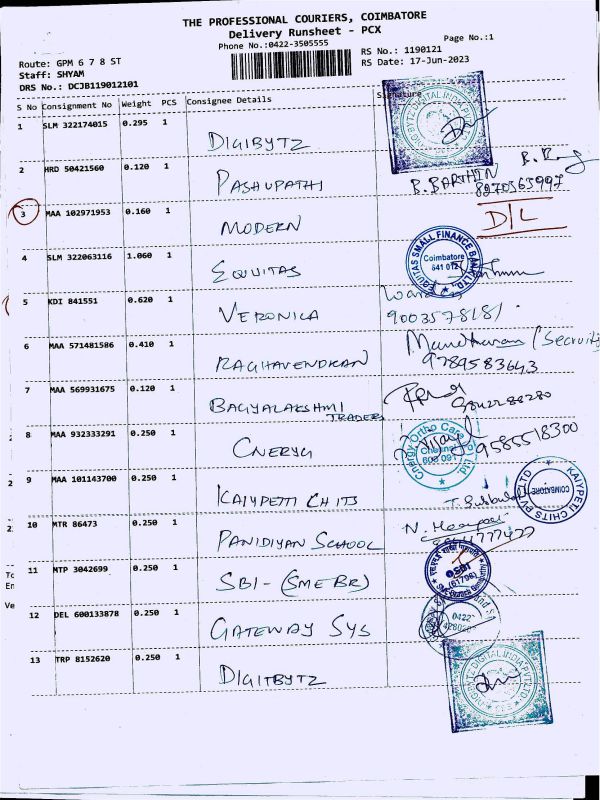 THE PROFESSIONAL COURIERS, COIMBATORE
Delivery Runsheet - PCX
Phone No.:0422-3505555
Page No.:1
Route: GPM 6 7 8 ST
RS No.: 1190121
Staff: SHYAM
RS Date: 17-Jun-2023
DRS No.: DCJB119012101
S No Consignment No Weight PCS Consignee Details Signature
1 SLM 322174015 0.295 1 DIGIBYTZ
2 HRD 50421560 0.120 1 PASHUPATHI B. BARTHIN
8270565997
3 MAA 102971953 0.160 1 MODERN D/L
4 SLM 322063116 1.060 1 EQUITAS
EQUITAS SMALL FINANCE BANK LTD.
Coimbatore
641 012
5 KDI 841551 0.620 1 VERONICA
9003578181
6 MAA 571481586 0.410 1 RAGHAVENDRAN Manoharan (Security)
9789583643
7 MAA 569931675 0.120 1 BAGYALAKSHMI
TRADERS
8 MAA 932333291 0.250 1 CNERYG 9585518300
Cnergy Ortho Care
Chennai
600 091
9 MAA 101143700 0.250 1 KAIYPETI CHITS
KAIYPETI CHITS PVT LTD
COIMBATORE
10 MTR 86473 0.250 1 PANIDIYAN SCHOOL
11 MTP 3042699 0.250 1 SBI- (SME BR)
SBI
12 DEL 600133878 0.250 1 GATEWAY SYS
0422
13 TRP 8152620 0.250 1 DIGITBYTZ
DIGIBYTZ DIGITAL INDIA PVT LTD